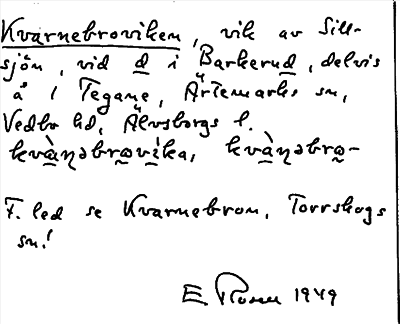 Kvarnebroviken, vik av Sill-
sjön, vid d i Bärkerud, delvis
å 1 Tegane, Ärtemarks sn,
Vedbo hd, Älvsborgs l.
kvàꞃəbrovíka, kvàꞃəbro-
F. led se Kvarnebron, Torrskogs
sn!
E Rosen 1949